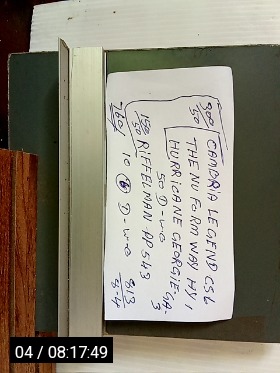 300/50 CAMBRIA LEGEND CSL
THE NU FORM WAY HY 1
HURRICANE GEORGIE GA-3
50 D-W-O
150/50 RIFFELMAN AP 543
10 D-W-O
813
04 / 08:17:49